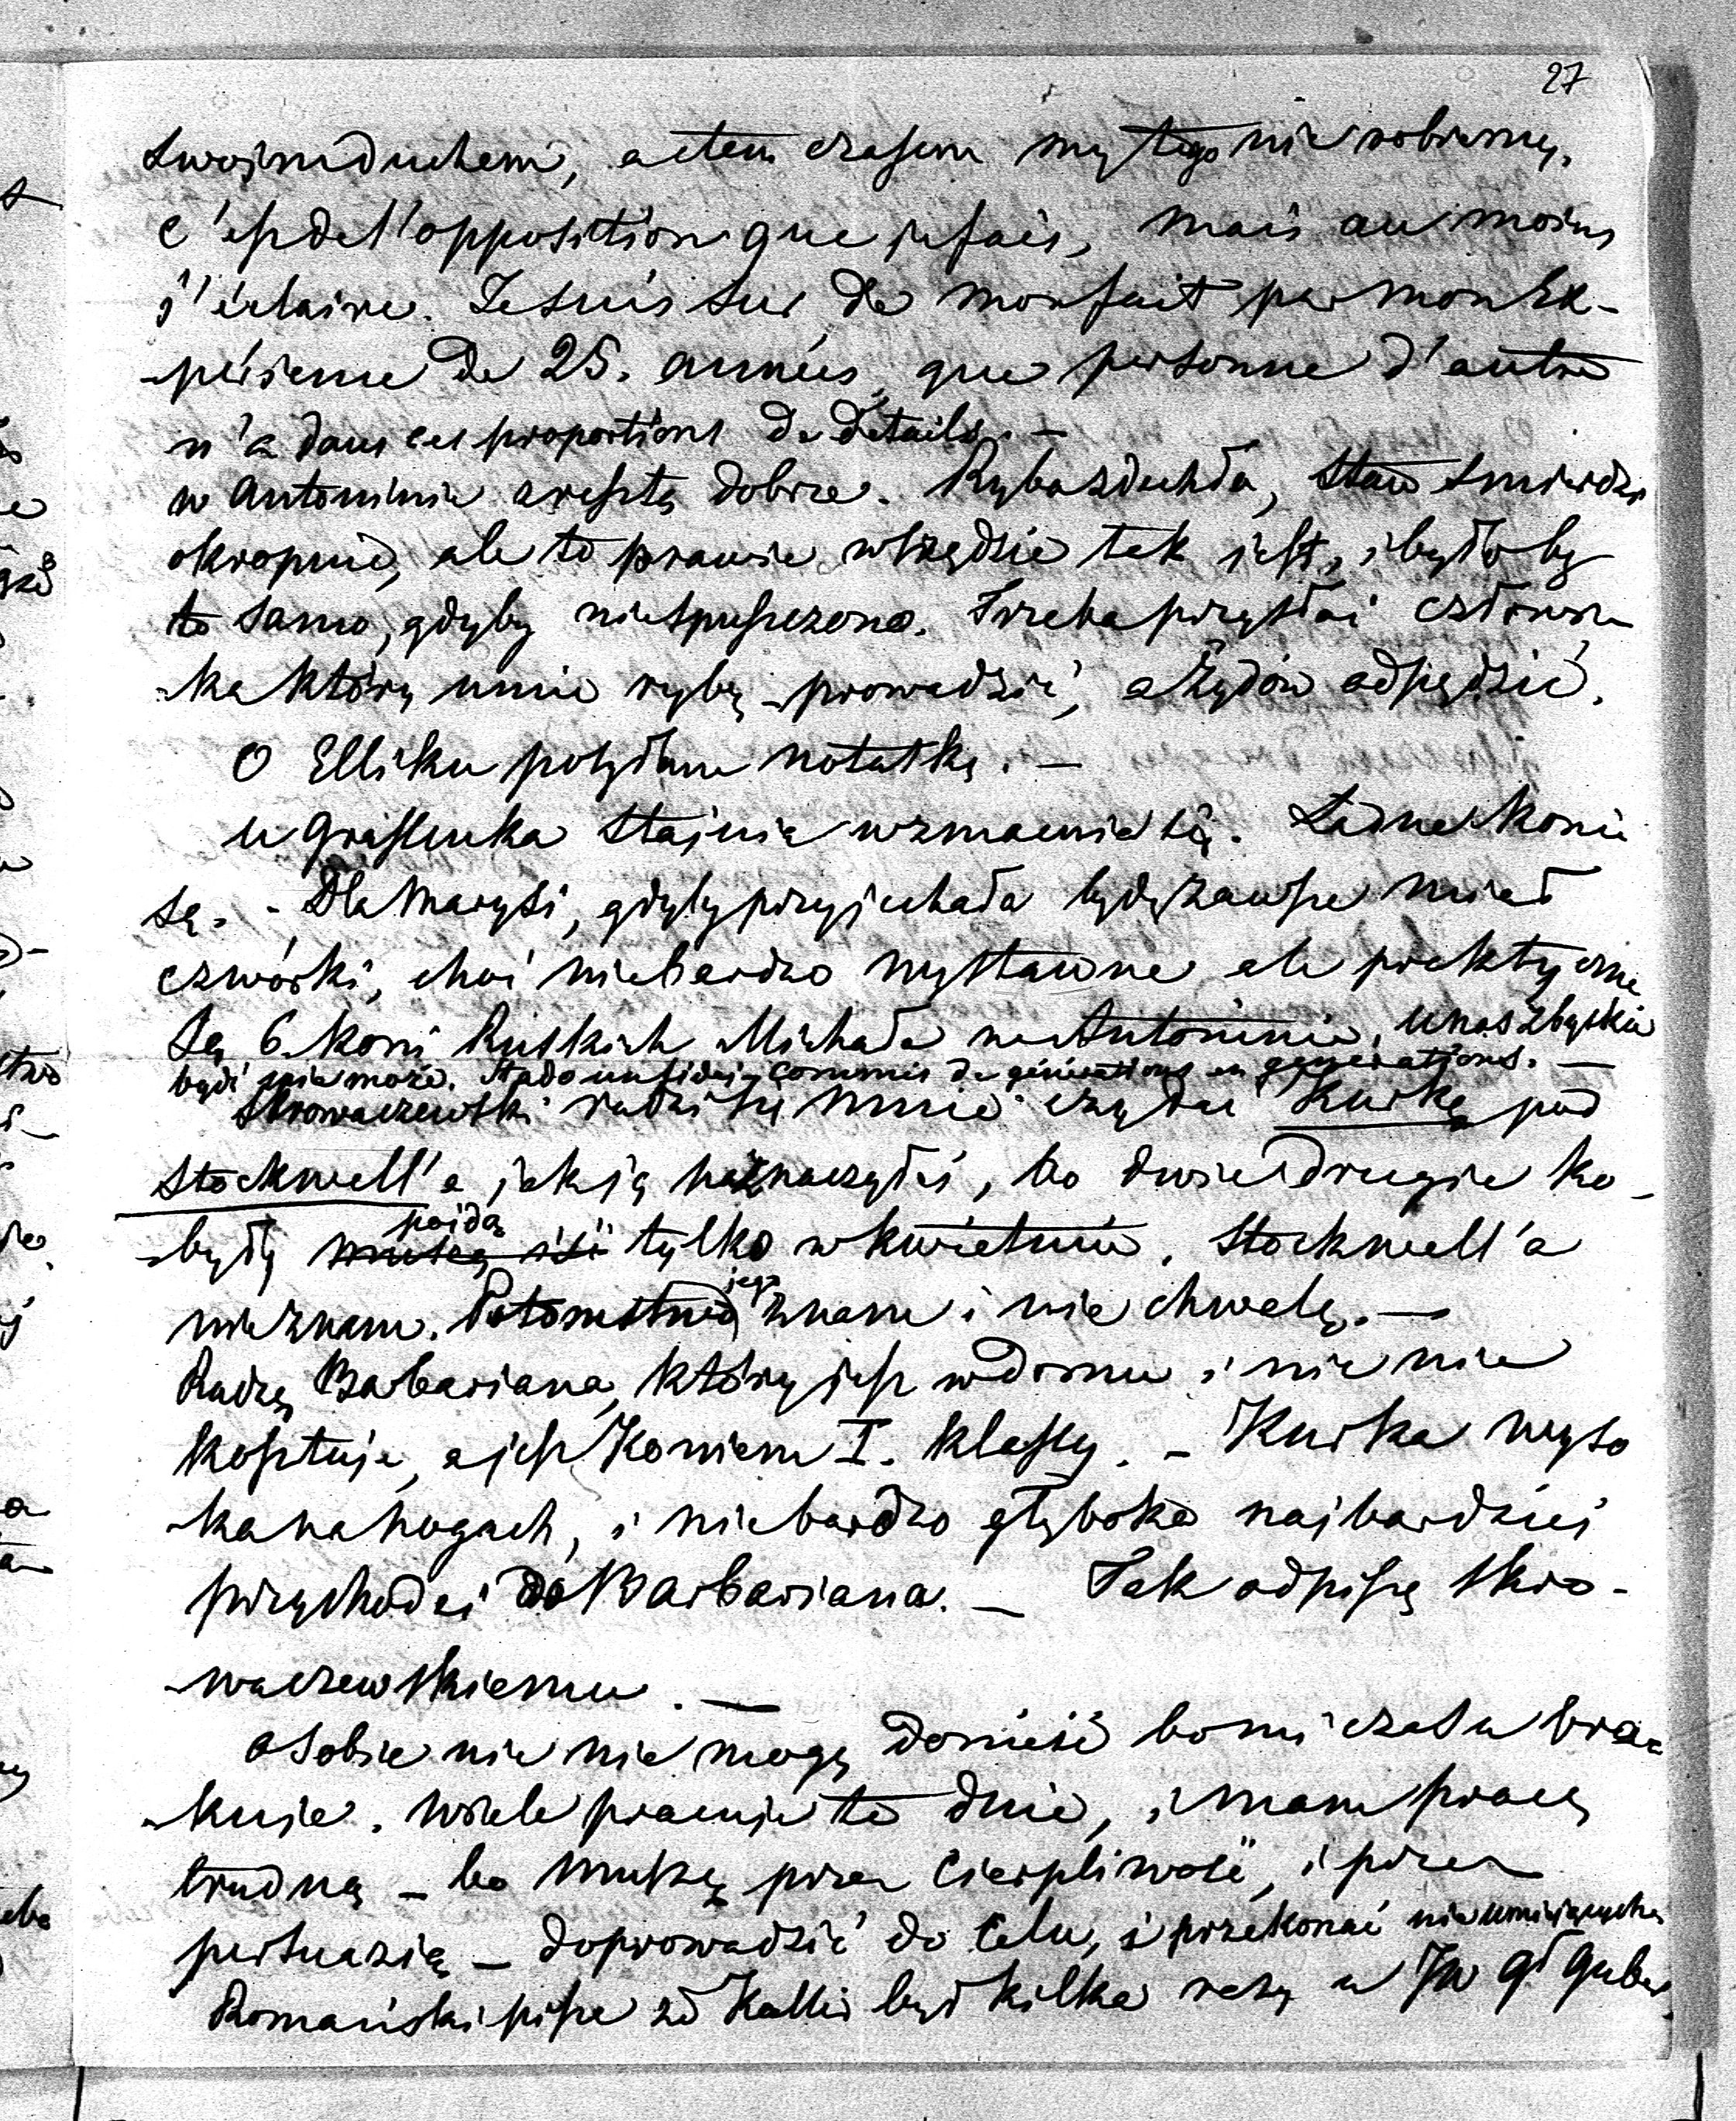 27
swoim duchem, a tem czasem my tego nie robiemy.
c'est de l'opposition que je fais, mais au moins
j'éclaire. Je suis sur de mon fait par mon ex-
-périence de 25. années, que personne d'autre
n'a dans ces proportions de détails. —
w Antoninie areszta dobrze. Ryba zdechła, staw smierdzi
okropnie, ale to prawie wszędzie tak jest, i byłoby
to samo, gdyby nie spuszczono. Trzeba przysłać człowie
-ka który umie ryby prowadzić, a Żydów odpędzić.
O Elliku posyłam notatkę. —
u Graffenka stajnia wzmacnia się. Ładne konie
są. - Dla Marysi, gdyby przyjechała będę zawsze miał
czwórki, choć niebardzo wystawne ale praktyczne
Są 6. koni Ruskich Michała w Antoninie.
być nie może. Stado un fidei-commis de générations en generations. —
Skrowaczewski radzi się mnie czy dać Kurkę pod
Stockwell'a jak ją naznaczyłeś, bo dwie drugie ko-
-były pójdą tylko w kwietniu. Stockwell'a
nie znam. Potomstwo jego znam i nie chwalę. —
Radzę Barbariana, który jest w domu i nic nie
kosztuje, a jest Koniem I. klassy. - Kurka wyso
-ka na nogach, i niebardzo głęboka najbardziej
przychodzi do Barbariana. — Tak odpiszę Skro-
-waczewskiemu. —
O sobie nic nie mogę donieść bo mi czasu bra-
-kuje. Wiele pracuję te dnie, i mam pracę
trudną - bo muszę przez cierpliwość, i przez
perswazię — doprowadzić do celu, i przekonać nieumiejących
Romański pisze że Kalli był kilka razy u Jła Gł Guber.